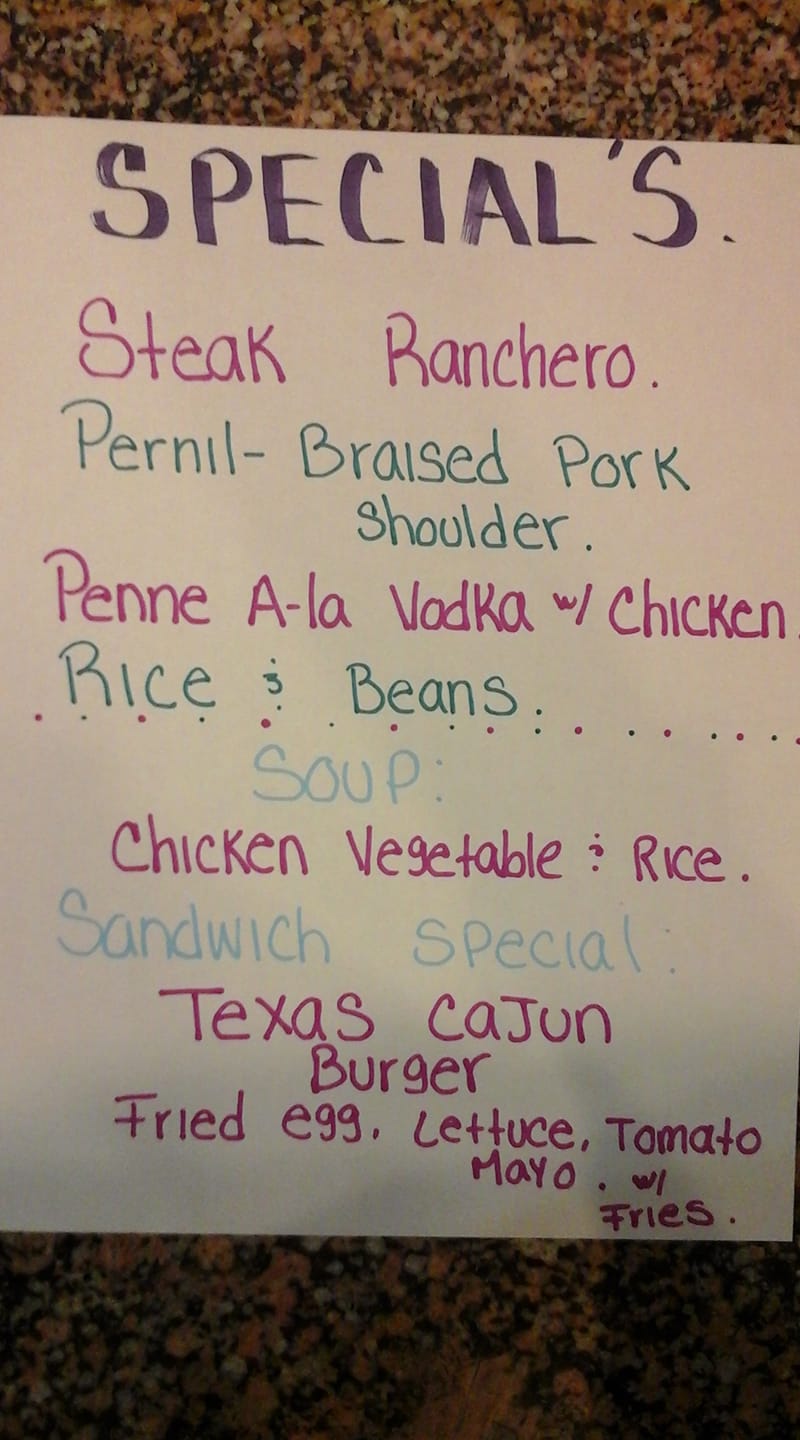 SPECIAL'S.
Steak Ranchero.
Pernil- Braised Pork
Shoulder.
Penne A-la Vodka w/ Chicken.
Rice & Beans.
Soup:
Chicken Vegetable & Rice.
Sandwich Special:
Texas Cajun
Burger
Fried egg, Lettuce, Tomato
Mayo. w/
Fries.